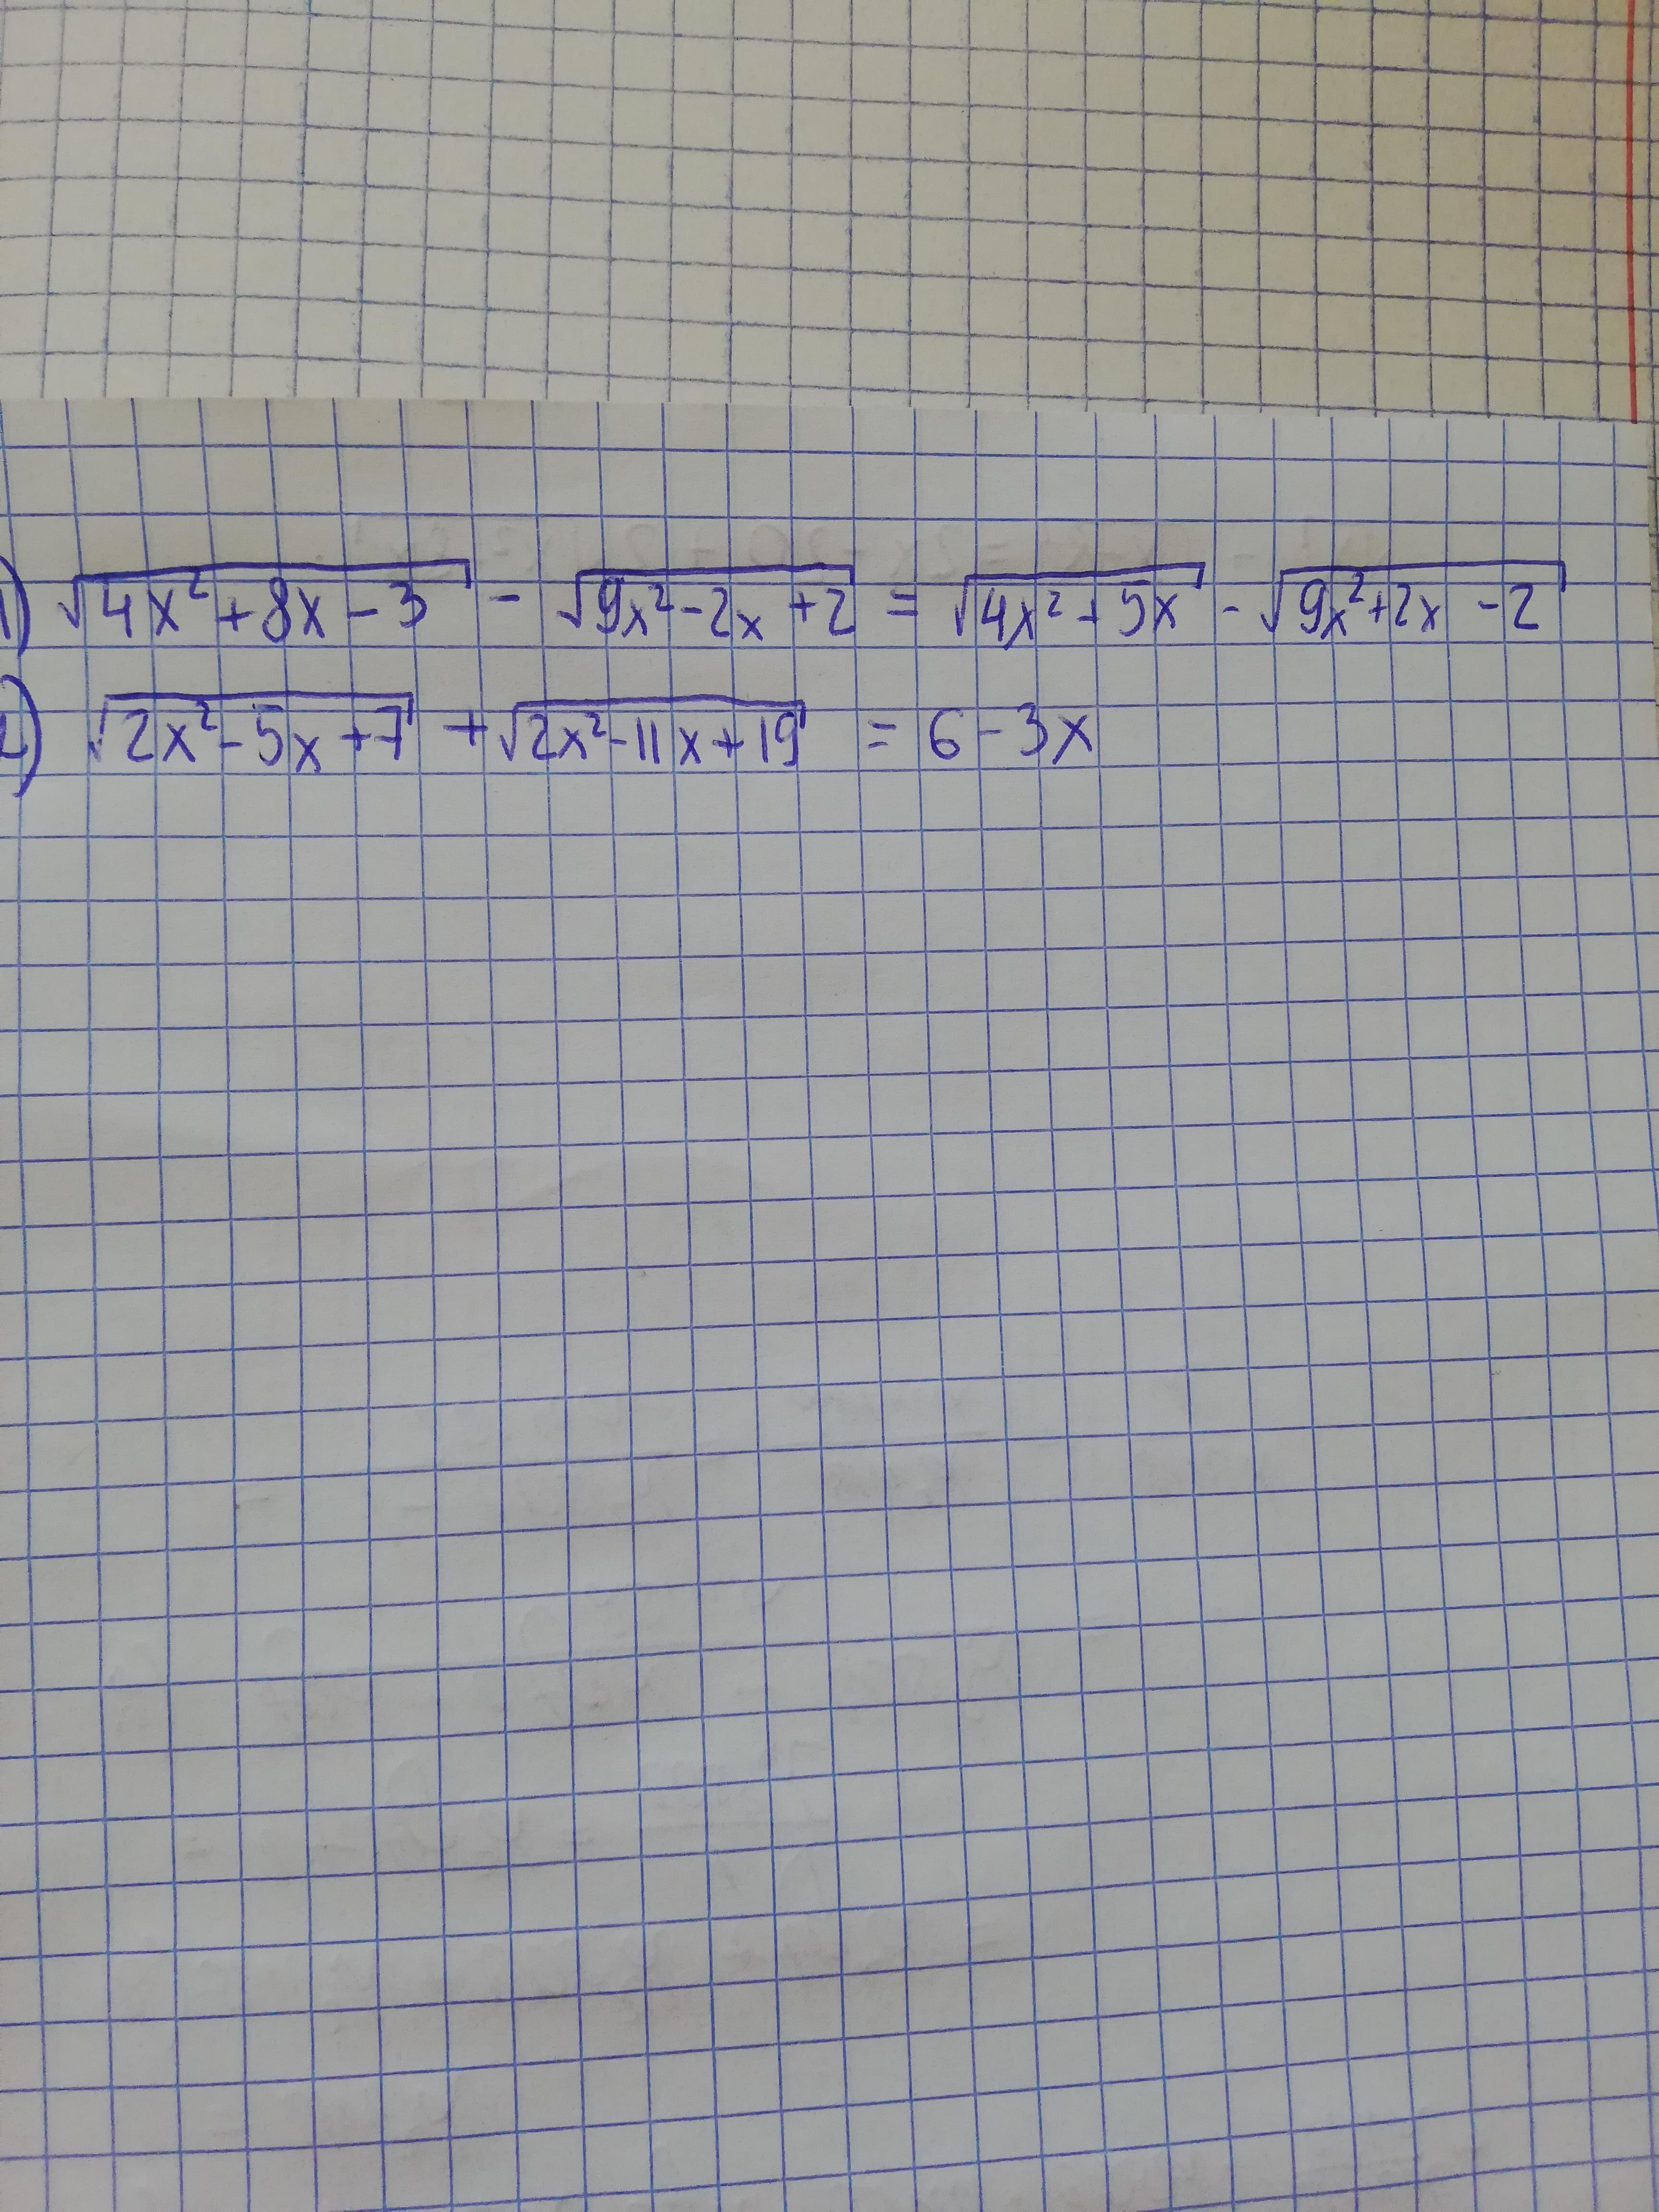 1) √(4x² + 8x - 3) - √(9x² - 2x + 2) = √(4x² + 5x) - √(9x² + 2x - 2)
2) √(2x² - 5x + 7) + √(2x² - 11x + 19) = 6 - 3x